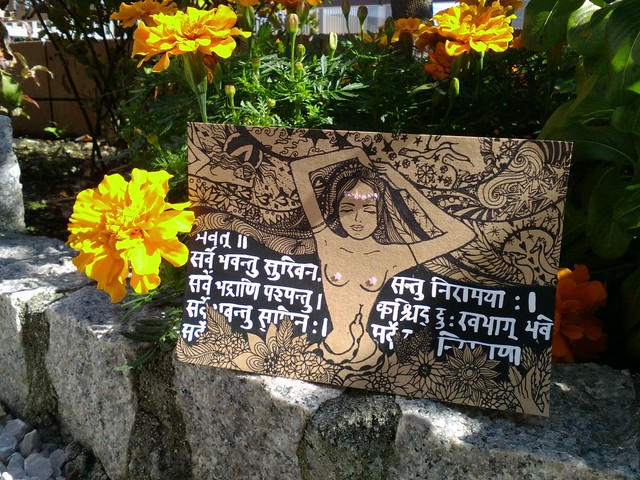 भवत् ॥
सर्वे भवन्तु सुखिन.
सर्वे भद्राणि पश्यन्तु ।
सर्वे भवन्तु सुखिन : ।
सर्वे
सन्तु निरामया : ।
कश्चिद् दु : खभाग् भवे
सर्वे